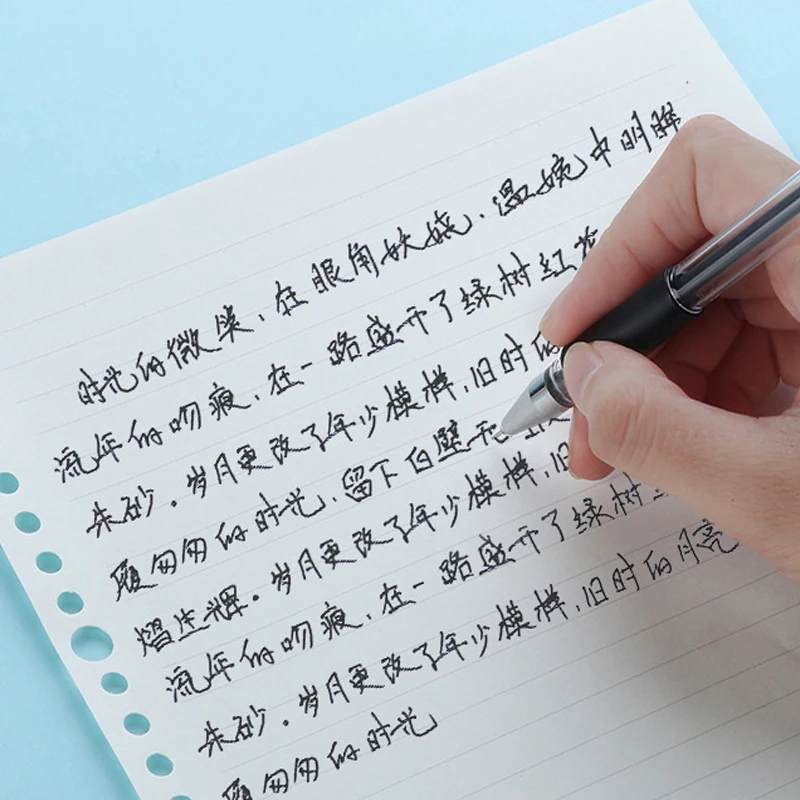 时光的微笑,在眼角妖娆,温婉中明眸
流年的吻痕,在一路盛开了绿树红花
朱砂。岁月更改了年少模样,旧时的
履匆匆的时光,留下白壁和
熠生辉。岁月更改了年少模样,旧
流年的吻痕,在一路盛开了绿树
朱砂。岁月更改了年少模样,旧时的月亮
履匆匆的时光